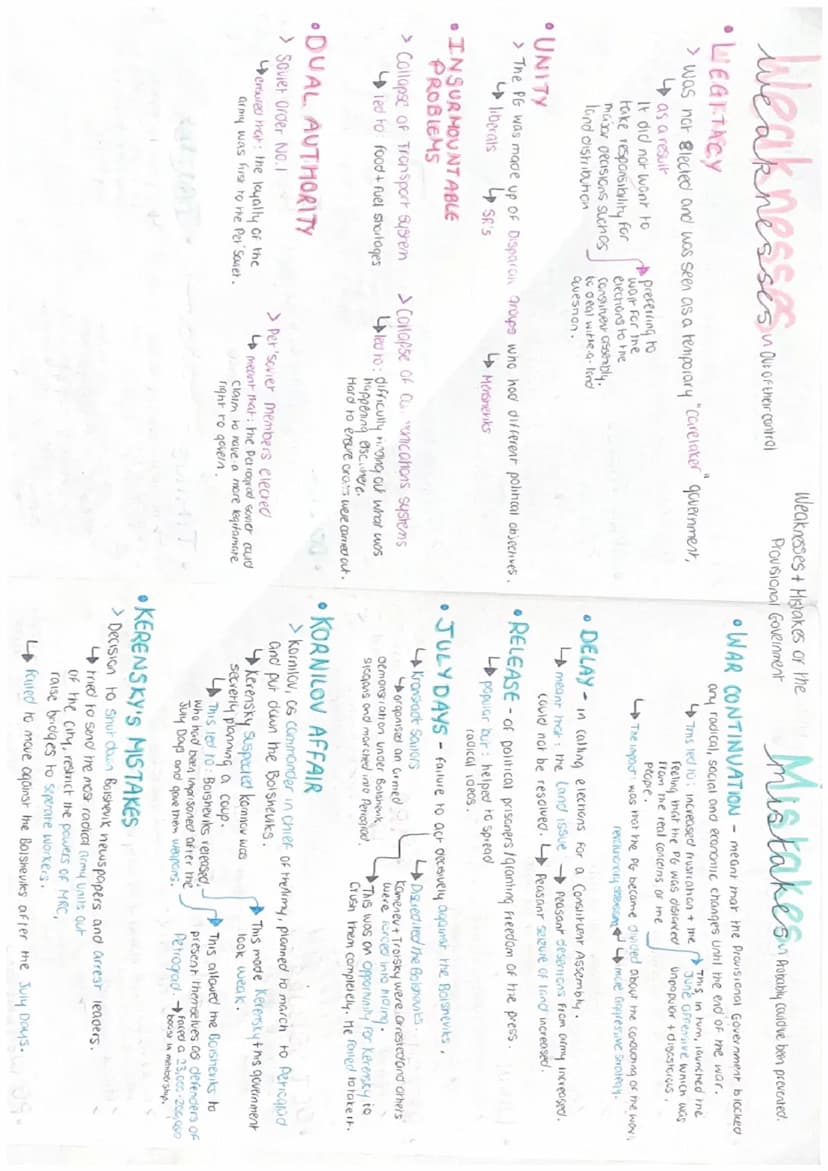 Weaknesses + Mistakes of the
Provisional Government
Weaknesses
weaknesses in out of their control
• LEGITACY
> was not elected and was seen as a temporary "caretaker" government,
↳ as a result
It did not want to
take responsibility for
major decisions such as
land distribution
→ preferring to
wait for the
elections to the
constituent assembly
to deal with land
question.
• UNITY
> The PG was made up of Disparate groups who had different political objectives.
↳ liberals ↳ SR's ↳ Mensheviks
• INSURMOUNTABLE
PROBLEMS
> Collapse of Transport system
↳ led to: food + fuel shortages
> Collapse of systems
↳ led to: difficulty finding out what was
happening elsewhere.
Hard to ensure were carried out.
• DUAL AUTHORITY
> Soviet Order No.1
↳ ensured that: the loyalty of the
army was first to the Pet'Soviet.
> Pet'soviet members elected
↳ meant that: the Petrograd soviet could
claim to have a more legitimate
right to govern.
Mistakes
mistakes in Probably could've been prevented.
• WAR CONTINUATION - meant that the Provisional Government blocked
any radical, social and economic changes until the end of the war.
↳ This led to: increased frustration + the
feeling that the PG was distanced
from the real concerns of the
people.
→ This in turn, launched the
June offensive which was
unpopular + disastrous,
↳ The impact: was that the PG became divided about the conducting of the war,
↳ more aggressive strategy.
• DELAY - in calling elections for a Constituent Assembly.
↳ meant that: the land issue
could not be resolved.
→ Peasant desertions from army increased.
↳ Peasant seizure of land increased.
• RELEASE - of political prisoners / granting freedom of the press.
↳ popular but: helped to spread
radical ideas.
• JULY DAYS - failure to act decisively against the Bolsheviks,
↳ Kronstadt sailors
↳ organised an armed
demonstration under Bolshevik
slogans and marched into Petrograd.
↳ Discredited the Bolsheviks
Kamenev + Trotsky were arrested and others
were forced into hiding.
↳ This was an opportunity for Kerensky to
crush them completely. He failed to take it.
• KORNILOV AFFAIR
> Kornilov, as commander in chief of the army, planned to march to Petrograd
and put down the Bolsheviks.
↳ Kerensky suspected Kornilov was
secretly planning a coup.
→ This made Kerensky + his government
look weak.
↳ This led to: Bolsheviks released,
who had been imprisoned after the
July Days and gave them weapons.
→ This allowed the Bolsheviks to
present themselves as defenders of
Petrograd.
boost in membership.
• KERENSKY'S MISTAKES
> Decision to shut down Bolshevik newspapers and arrest leaders.
↳ tried to send the most radical army units out
of the city, restrict the powers of MRC,
raise bridges to separate workers.
↳ Failed to move against the Bolsheviks after the July Days.